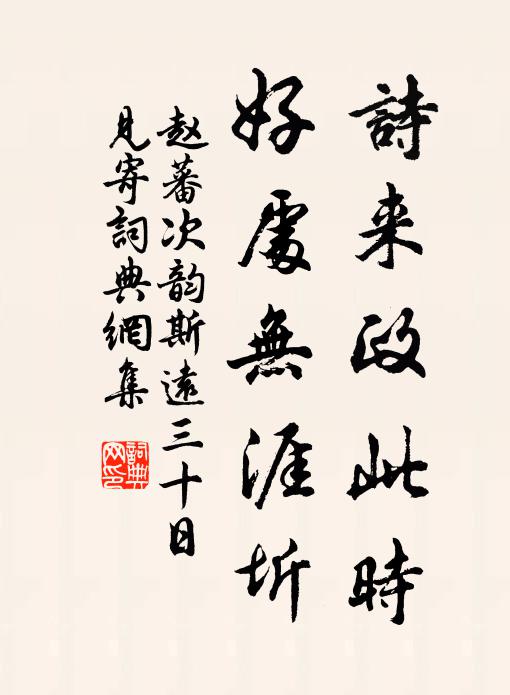 詩来政此時
好處無涯圻
赵蕃次韵斯遠三十日
見寄詞典網集
詞典网印